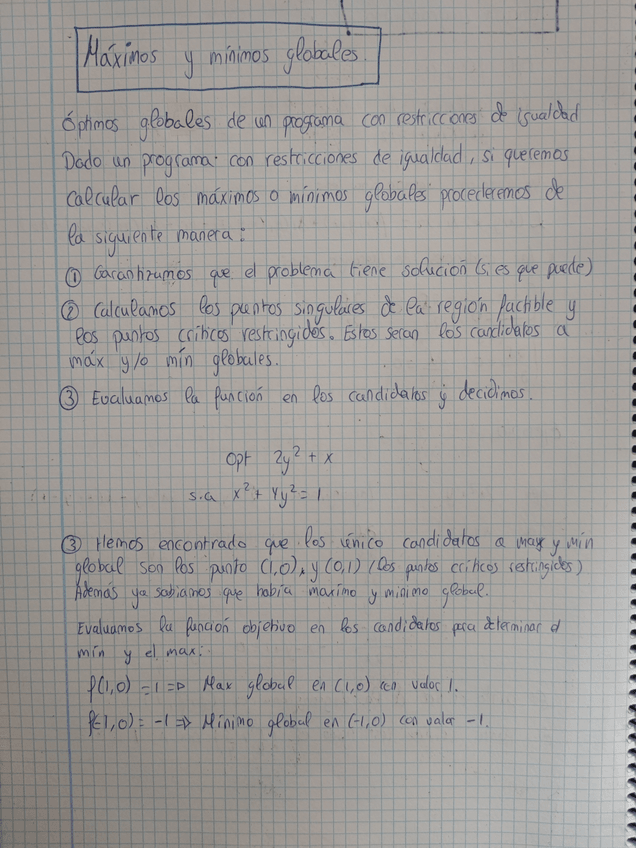 Máximos y mínimos globales.
Óptimos globales de un programa con restricciones de igualdad
Dado un programa con restricciones de igualdad, si queremos
calcular los máximos o mínimos globales procederemos de
la siguiente manera:
① Garantizamos que el problema tiene solución (si es que puede)
② Calculamos los puntos singulares de la región factible y
los puntos críticos restringidos. Estos seran los candidatos a
máx y/o mín globales.
③ Evaluamos la función en los candidatos y decidimos.
Opt 2y² + x
s.a x² + 4y² = 1
③ Hemos encontrado que los único candidatos a max y min
global son los punto (1,0), y (0,1) (los puntos críticos restringidos)
Además ya sabíamos que había maximo y minimo global.
Evaluamos la función objetivo en los candidatos para determinar el
mín y el max:
f(1,0) = 1 ⇒ Max global en (1,0) con valor 1.
f(-1,0) = -1 ⇒ Mínimo global en (-1,0) con valor -1.